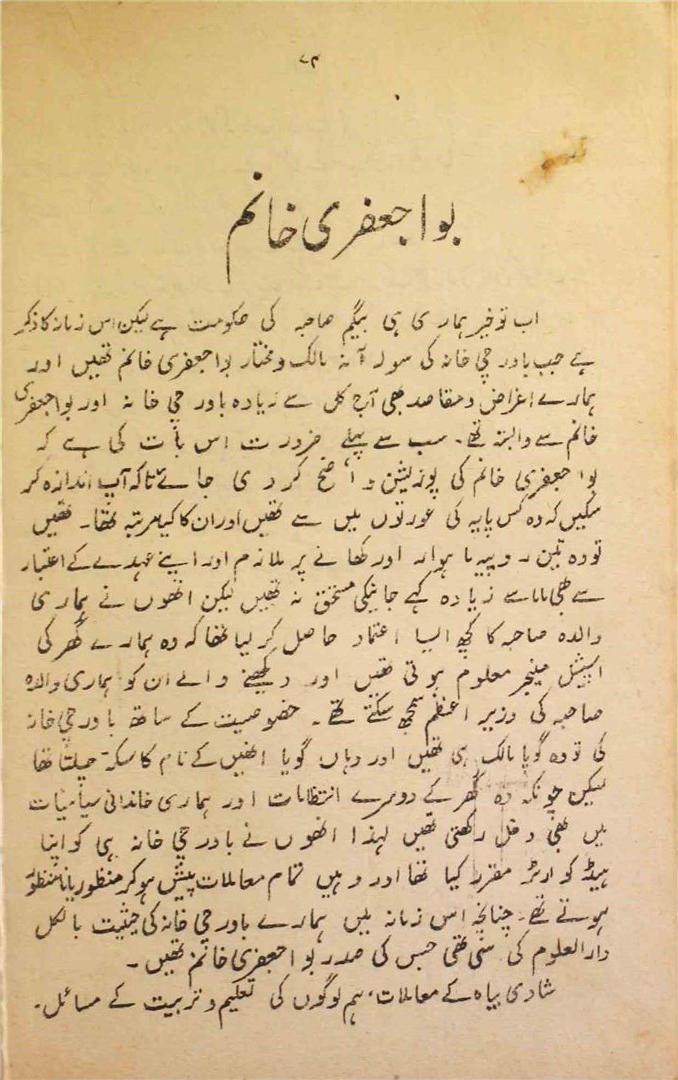 ۷۴
بوا جعفری خانم
اب تو خیر ہماری ہی بیگم صاحبہ کی حکومت ہے لیکن اس زمانہ کا ذکر
ہے جب باورچی خانہ کی سولہ آنہ مالک و مختار بوا جعفری خانم تھیں اور
ہمارے اغراض و مقاصد بھی آج کل سے زیادہ باورچی خانہ اور بوا جعفری
خانم سے وابستہ تھے۔ سب سے پہلے ضرورت اس بات کی ہے کہ
بوا جعفری خانم کی پوزیشن واضح کر دی جائے تاکہ آپ اندازہ کر
سکیں کہ وہ کس پایہ کی عورتوں میں سے تھیں اور ان کا کیا مرتبہ تھا۔ تھیں
تو وہ تین روپیہ ماہوار اور کھانے پر ملازم اور اپنے عہدے کے اعتبار
سے بھی ماما سے زیادہ کہے جانیکی مستحق نہ تھیں لیکن انھوں نے ہماری
والدہ صاحبہ کا کچھ ایسا اعتماد حاصل کر لیا تھا کہ وہ ہمارے گھر کی
اسپیشل مینجر معلوم ہوتی تھیں اور دیکھنے والے ان کو ہماری والدہ
صاحبہ کی وزیر اعظم سمجھ سکتے تھے۔ خصوصیت کے ساتھ باورچی خانہ
کی تو وہ گویا مالک ہی تھیں اور وہاں گویا انھیں کے نام کا سکہ چلتا تھا
لیکن چونکہ وہ گھر کے دوسرے انتظامات اور ہماری خاندانی سیاسیات
میں بھی دخل رکھتی تھیں لہذا انھوں نے باورچی خانہ ہی کو اپنا
ہیڈ کوارٹر مقرر کیا تھا اور وہیں تمام معاملات پیش ہو کر منظور یا نامنظور
ہوتے تھے۔ چنانچہ اس زمانہ میں ہمارے باورچی خانہ کی حیثیت بالکل
دارالعلوم کی سی تھی جس کی صدر بوا جعفری خانم تھیں۔
شادی بیاہ کے معاملات، ہم لوگوں کی تعلیم و تربیت کے مسائل۔